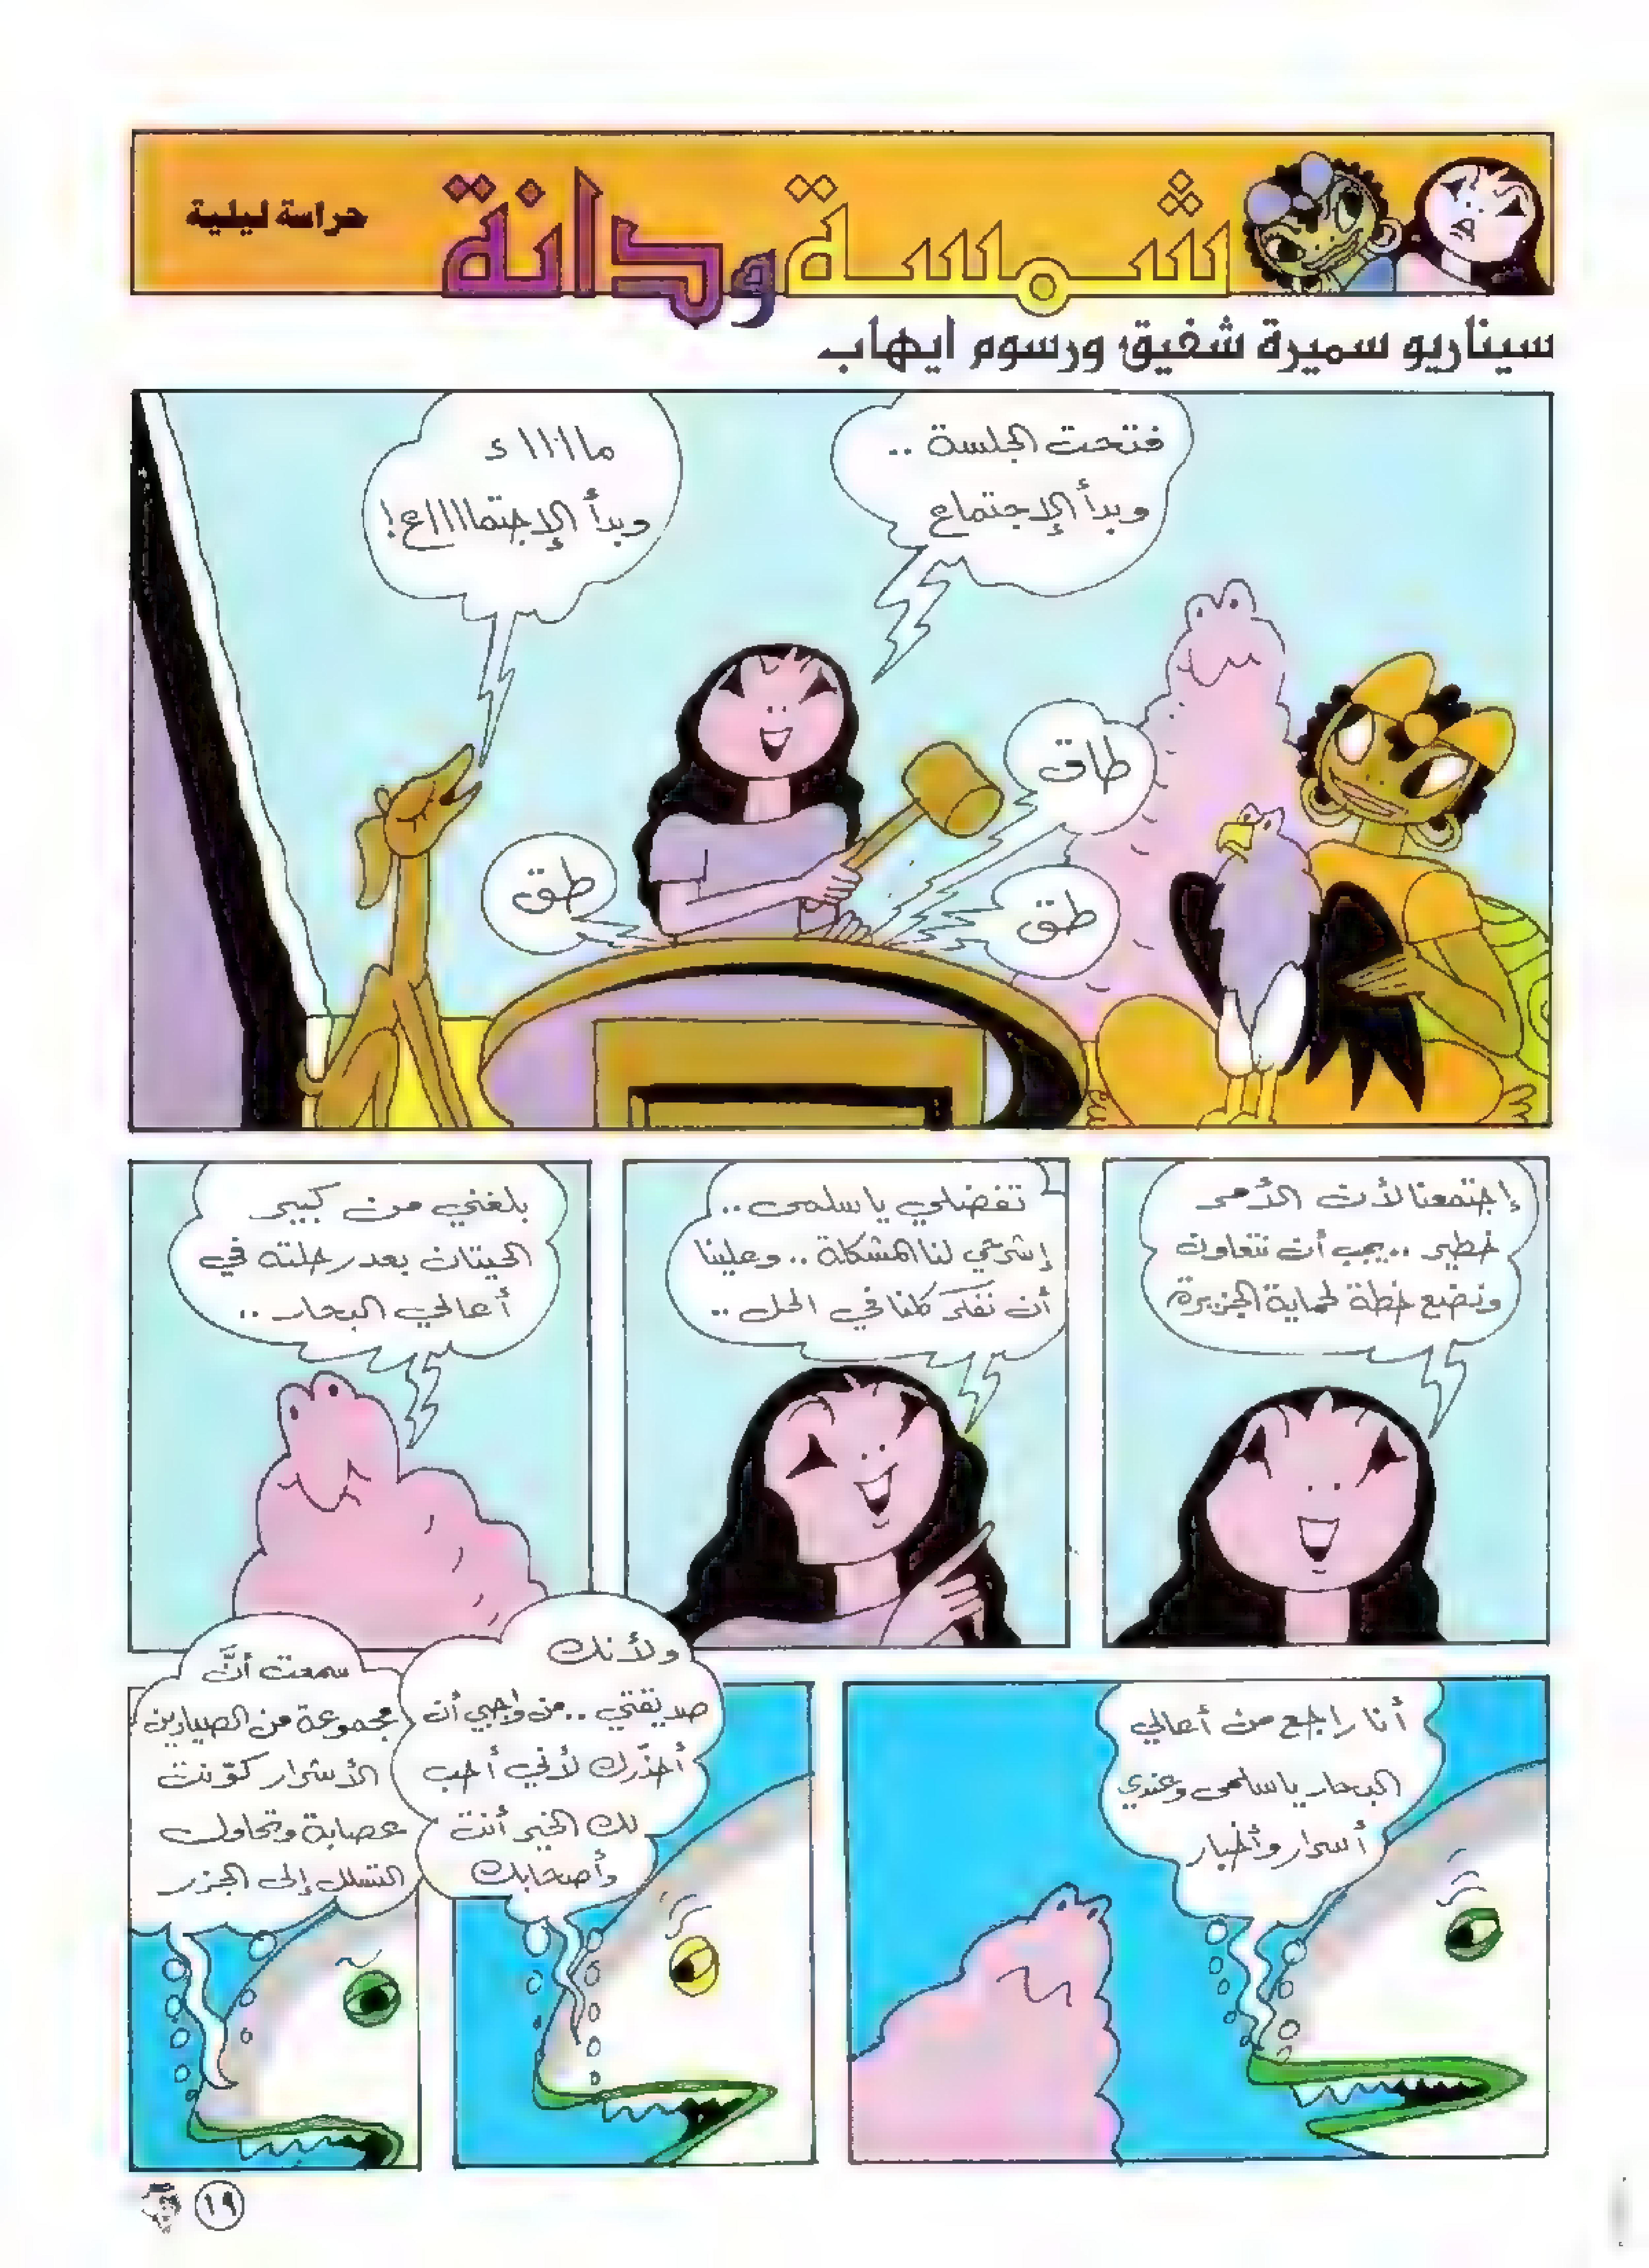 شمسة ودانة
حراسة ليلية
سيناريو سميرة شفيق ورسوم ايهاب
فتحت الجلسة ..
وبدأ الإجتماع
مااااا ء
وبدأ الإجتماااااع!
طاق
طق
طق
إجتمعنا لأن الأمر
خطير .. يجب أن نتعاون
ونضع خطة لحماية الجزيرة
تفضلي يا سلمى ..
إشرحي لنا المشكلة .. وعلينا
أن نفكر كلنا في الحل ..
بلغني من كبير
الحيتان بعد رحلته في
أعالي البحار ..
أنا راجع من أعالي
البحار يا سلمى وعندي
أسرار وأخبار
ولأنك
صديقتي .. من واجبي أن
أحذّرك لأني أحب
لك الخير أنت
وأصحابك
سمعت أنّ
مجموعة من الصيادين
الأشرار كوّنت
عصابة وتحاول
التسلل إلى الجزر
١٩